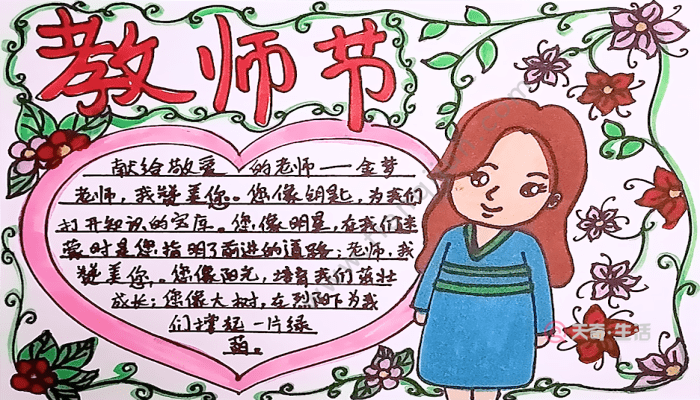 教师节
献给敬爱的老师——金梦
老师，我赞美您。您像钥匙，为我们
打开知识的宝库。您像明星，在我们迷
蒙时是您指明了前进的道路；老师，我
赞美您，。您像阳光，培育我们茁壮
成长；您像大树，在烈阳下为我
们撑起一片绿
荫。
天奇·生活